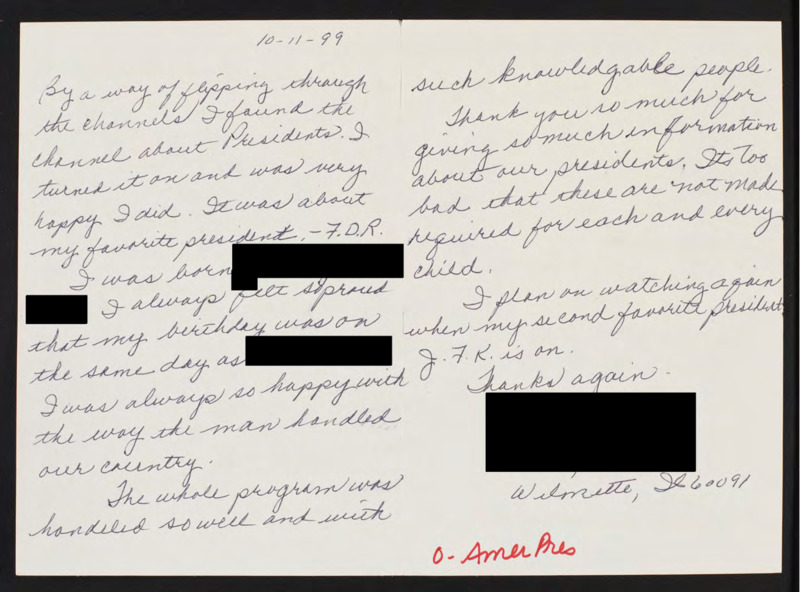 10-11-99
By a way of flipping through
the channels I found the
channel about Presidents. I
turned it on and was very
happy I did. It was about
my favorite president. - F.D.R.
I was born
I always felt so proud
that my birthday was on
the same day as
I was always so happy with
the way the man handled
our country.
The whole program was
handeled so well and with
such knowledgable people.
Thank you so much for
giving so much information
about our presidents. Its too
bad that these are not made
required for each and every
child.
I plan on watching again
when my second favorite president
J.F.K. is on.
Thanks again.
Wilmette, Il 60091
O- Amer Pres